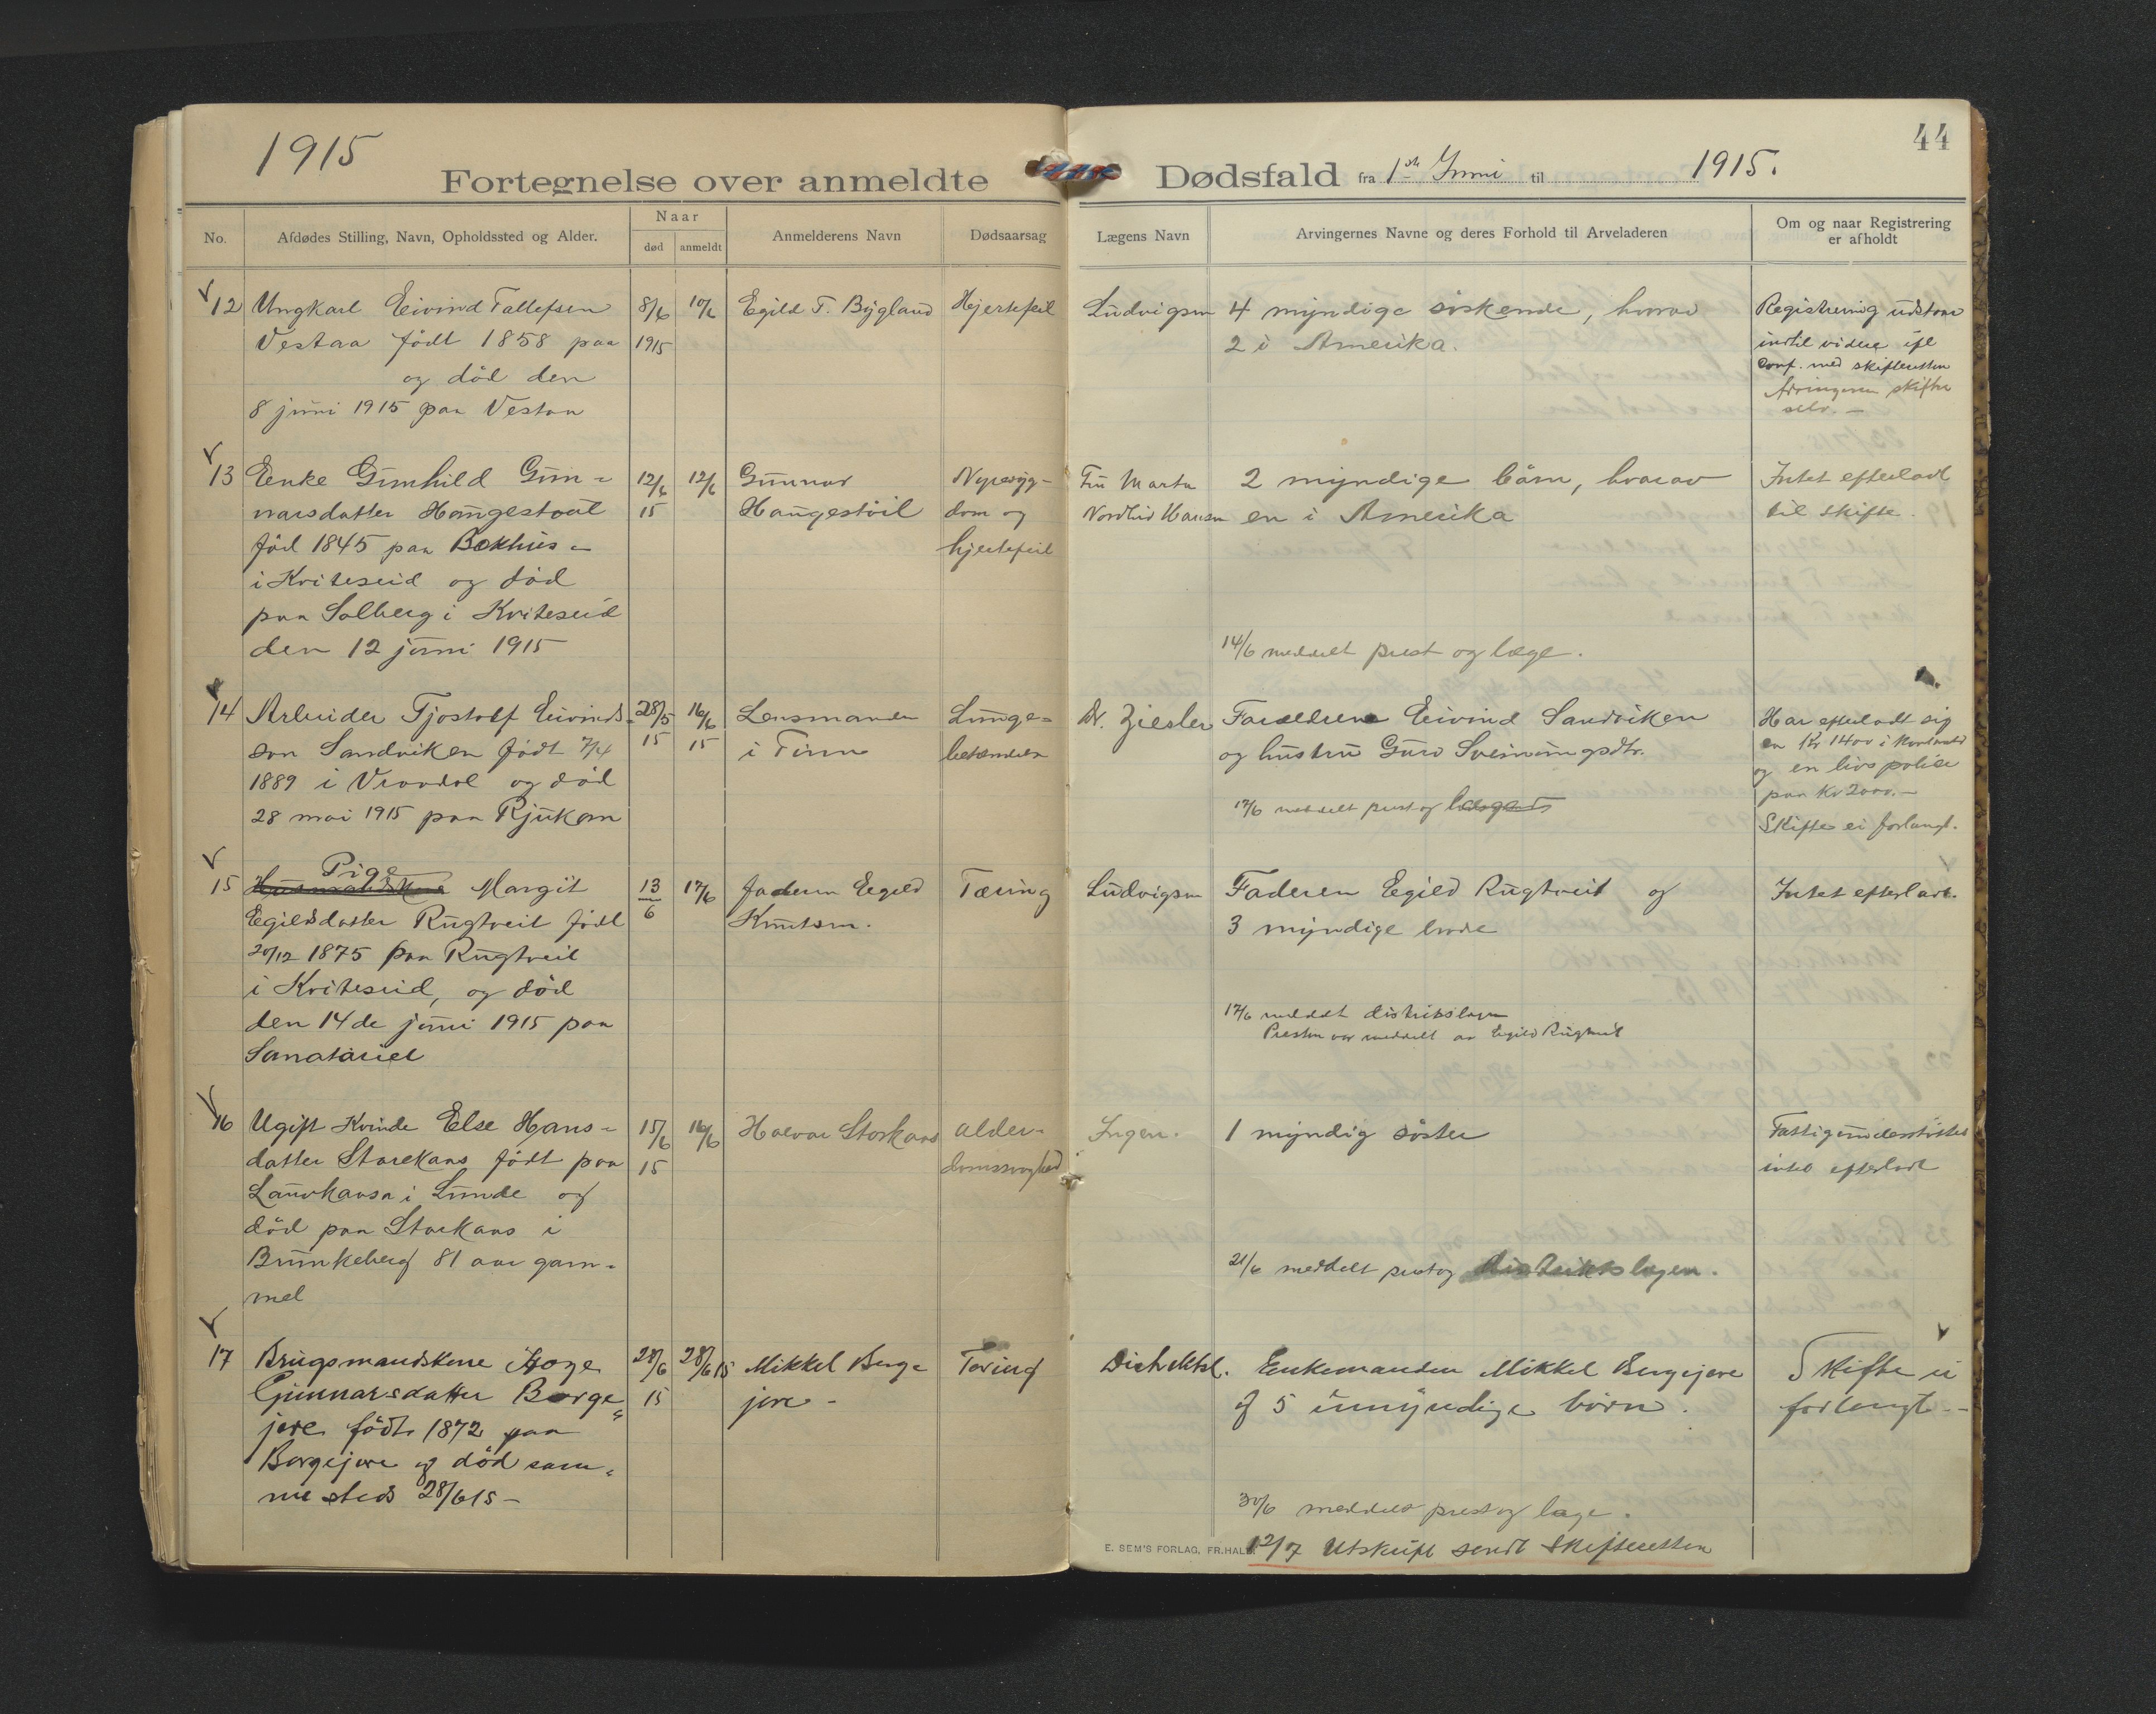 1915
44
Fortegnelse over anmeldte Dødsfald fra 1ste Juni til 1915.
No.
Afdødes Stilling, Navn, Opholdssted og Alder.
Naar
død
anmeldt
Anmelderens Navn
Dødsaarsag
Lægens Navn
Arvingernes Navne og deres Forhold til Arveladeren
Om og naar Registrering
er afholdt
12
Ungkarl Eivind Tallefsen
Vestaa født 1858 paa
og död den
8 juni 1915 paa Vestaa
8/6
1915
10/6
Egild T. Bygland
Hjertefeil
Ludvigsen
4 myndige söskende, hvorav
2 i Amerika.
Registrering udstaar
indtil videre
conf. med skifteretten
Arvingerne skifter
selv. —
13
Enke Gunhild Gun-
narsdatter Haugestoul
föd 1845 paa Bokhus-
i Kviteseid og död
paa Solberg i Kviteseid
den 12 juni 1915
12/6
15
12/6
Gunnar
Haugestöil
Nyresyg-
dom og
hjertefeil
Fru Marta
Nordlid Hansen
2 myndige börn, hvorav
en i Amerika
14/6 meddelt prest og læge.
Intet efterladt
til skifte.
14
Arbeider Tjostolf Eivinds-
son Sandviken födt 7/4
1889 i Vraadal og död
28 mai 1915 paa Rjukan
28/5
15
16/6
15
Lensmanden
i Tinn
Lunge-
betændelse
Dr. Ziesler
Forældrene Eivind Sandviken
og hustru Guro Sveinungsdtr.
17/6 meddelt prest og
Har efterladt sig
en Kr 1400 i kontant
og en livspolise
paa Kr 2000.-
Skifte ei forlangt.
15
Pige
Husmandskone Margit
Egilsdatter Rugtveit födt
20/12 1875 paa Rugtveit
i Kviteseid, og död
den 14de juni 1915 paa
Sanatoriet
13
6
17/6
Faderen Egild
Knutsen.
Tæring
Ludvigsen
Faderen Egild Rugtveit og
3 myndige brödre
17/6 meddelt distriktslægen
Presten var meddelt av Egild Rugtveit
Intet efterladt.
16
Ugift Kvinde Else Hans-
datter Storekaas födt paa
i Lunde og
död paa Storkaas i
Brunkeberg 81 aar gam-
mel
15/6
15
16/6
Halvor Storkaas
alder-
domssvaghed
Ingen.
1 myndig söster
21/6 meddelt prest og distriktslægen.
Fattigunderstöttet
intet efterladt
17
Brugsmandskone Aage
Gunnarsdatter Berge-
jore födt 1872 paa
Bergejore og död sam-
mesteds 28/6 15 -
28/6
15
28/6 15
Mikkel Berge
jore -
Tæring
Distriktsl.
Enkemanden Mikkel Bergejore
og 5 umyndige börn.
30/6 meddelt prest og læge.
12/7 Utskrift sendt Skifteretten
Skifte ei
forlangt. -
E. SEM'S FORLAG, FR.HALD